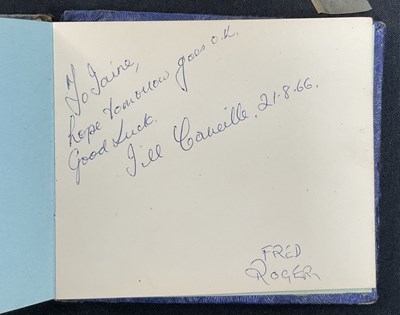 To Jaine,
hope tomorrow goes o.k.
Good Luck.
Jill 21.8.66.
FRED
ROGER